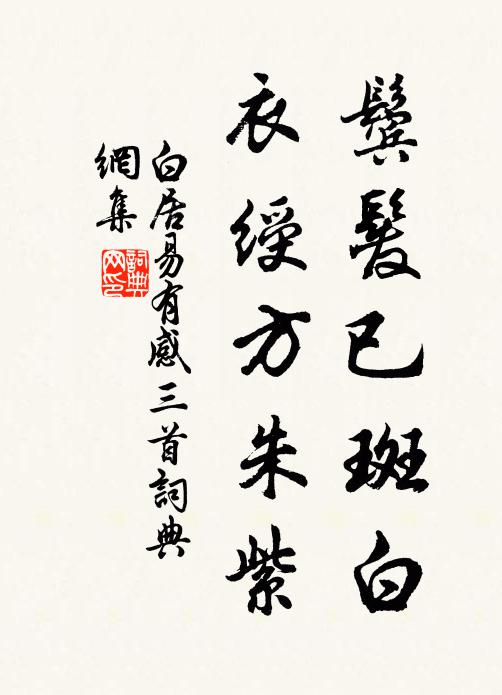 鬓髮已斑白
衣綬方朱紫
白居易有感三首詞典
網集
詞典
网印